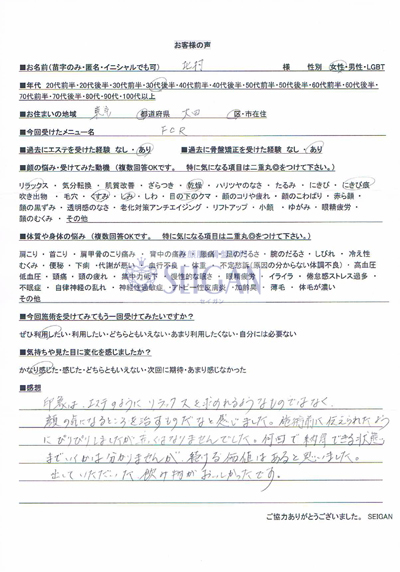 お客様の声
■お名前(苗字のみ・匿名・イニシャルでも可) 北村 様 性別 女性・男性・LGBT
■年代 20代前半・20代後半・30代前半・30代後半・40代前半・40代後半・50代前半・50代後半・60代前半・60代後半・
70代前半・70代後半・80代・90代・100代以上
■お住まいの地域 東京 都道府県 大田 区・市在住
■今回受けたメニュー名 FCR
■過去にエステを受けた経験 なし・あり ■過去に骨盤矯正を受けた経験 なし・あり
■顔の悩み・受けてみた動機 (複数回答OKです。 特に気になる項目は二重丸◎をつけて下さい。)
リラックス ・ 気分転換 ・ 肌質改善 ・ ざらつき ・ 乾燥 ・ ハリツヤのなさ ・ たるみ ・ にきび ・ にきび痕
吹き出物 ・ 毛穴 ・ くすみ ・ しみ ・ しわ ・ 目の下のクマ ・ 顔のコリや疲れ ・ 顔のこわばり ・ 赤ら顔 ・
顔の黒ずみ ・ 透明感のなさ ・ 老化対策アンチエイジング ・ リフトアップ ・ 小顔 ・ ゆがみ ・ 眼精疲労 ・
顔のむくみ ・ その他
■体質や身体の悩み (複数回答OKです。 特に気になる項目は二重丸◎を受けて下さい。)
肩こり ・ 首こり ・ 肩甲骨のこり痛み ・ 背中の痛み ・ 腰痛 ・ 足のだるさ ・ 腕のだるさ ・ しびれ ・ 冷え性
むくみ ・ 便秘 ・ 下痢 ・ 代謝が悪い ・ 血行不良 ・ ・ 不定愁訴(原因の分からない体調不良) ・ 高血圧
低血圧 ・ 頭痛 ・ 頭の疲れ ・ 集中力低下 ・ 慢性的な咳き ・ 眼精疲労 ・ イライラ ・ 倦怠感ストレス過多 ・
不眠症 ・ 自律神経の乱れ ・ 神経性過敏症 ・ アトピー性皮膚炎 ・ 加齢臭 ・ 薄毛 ・ 体毛が濃い
その他
SEIGAN
セイガン
■今回施術を受けてみてもう一度受けてみたいですか?
ぜひ利用したい・利用したい・どちらともいえない・あまり利用したくない・自分には必要ない
■気持ちや見た目に変化を感じましたか?
かなり感じた・感じた・どちらともいえない・次回に期待・あまり感じなかった
■感想
印象は、エステのように リラックスを求められるようなものではなく、
顔の気になるところを治すものだなと感じました。施術前に伝えられたよう
にぴりぴりしましたが、赤くはなりませんでした。何回で納得できる状態
までいくかは分かりませんが、続ける価値はあると思いました。
出していただいた飲み物がおいしかったです。
ご協力ありがとうございました。 SEIGAN